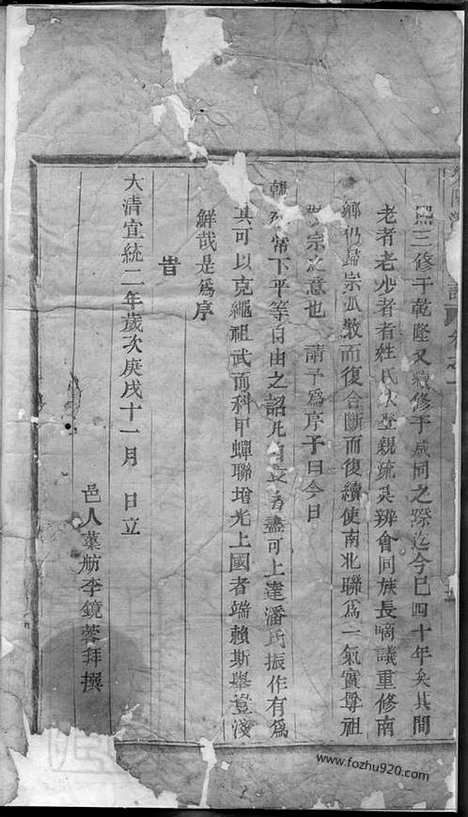 熙三修于乾隆又續修于咸同之際迄今已四十年矣其間
老者老少者者姓氏未登親疏莫辨會同族長嘀議重修南
鄉仍歸宗派散而復合斷而復續使南北聯爲一氣實尊祖
敬宗之意也 請予爲序予曰今日
朝列常下平等自由之詔凡自立者盡可上達潘氏振作有爲
其可以克繩祖武而科甲蟬聯增光上國者端賴斯舉豈淺
鮮哉是爲序
旹
大清宣統二年歲次庚戌十一月 日立
邑人葉舫李鏡蓉拜撰
www.fozhu920.com